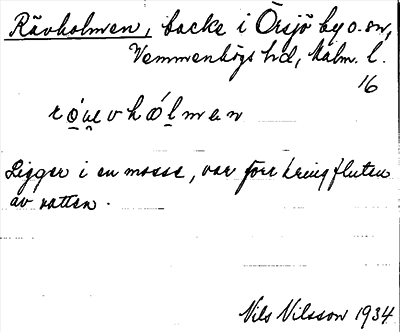 Rävholmen, backe i Örsjö by o. sn,
Vemmenhögs hd, Malm. l.
16
Ligger i en mosse, var förr kringfluten
av vatten.
Nils Nilsson 1934